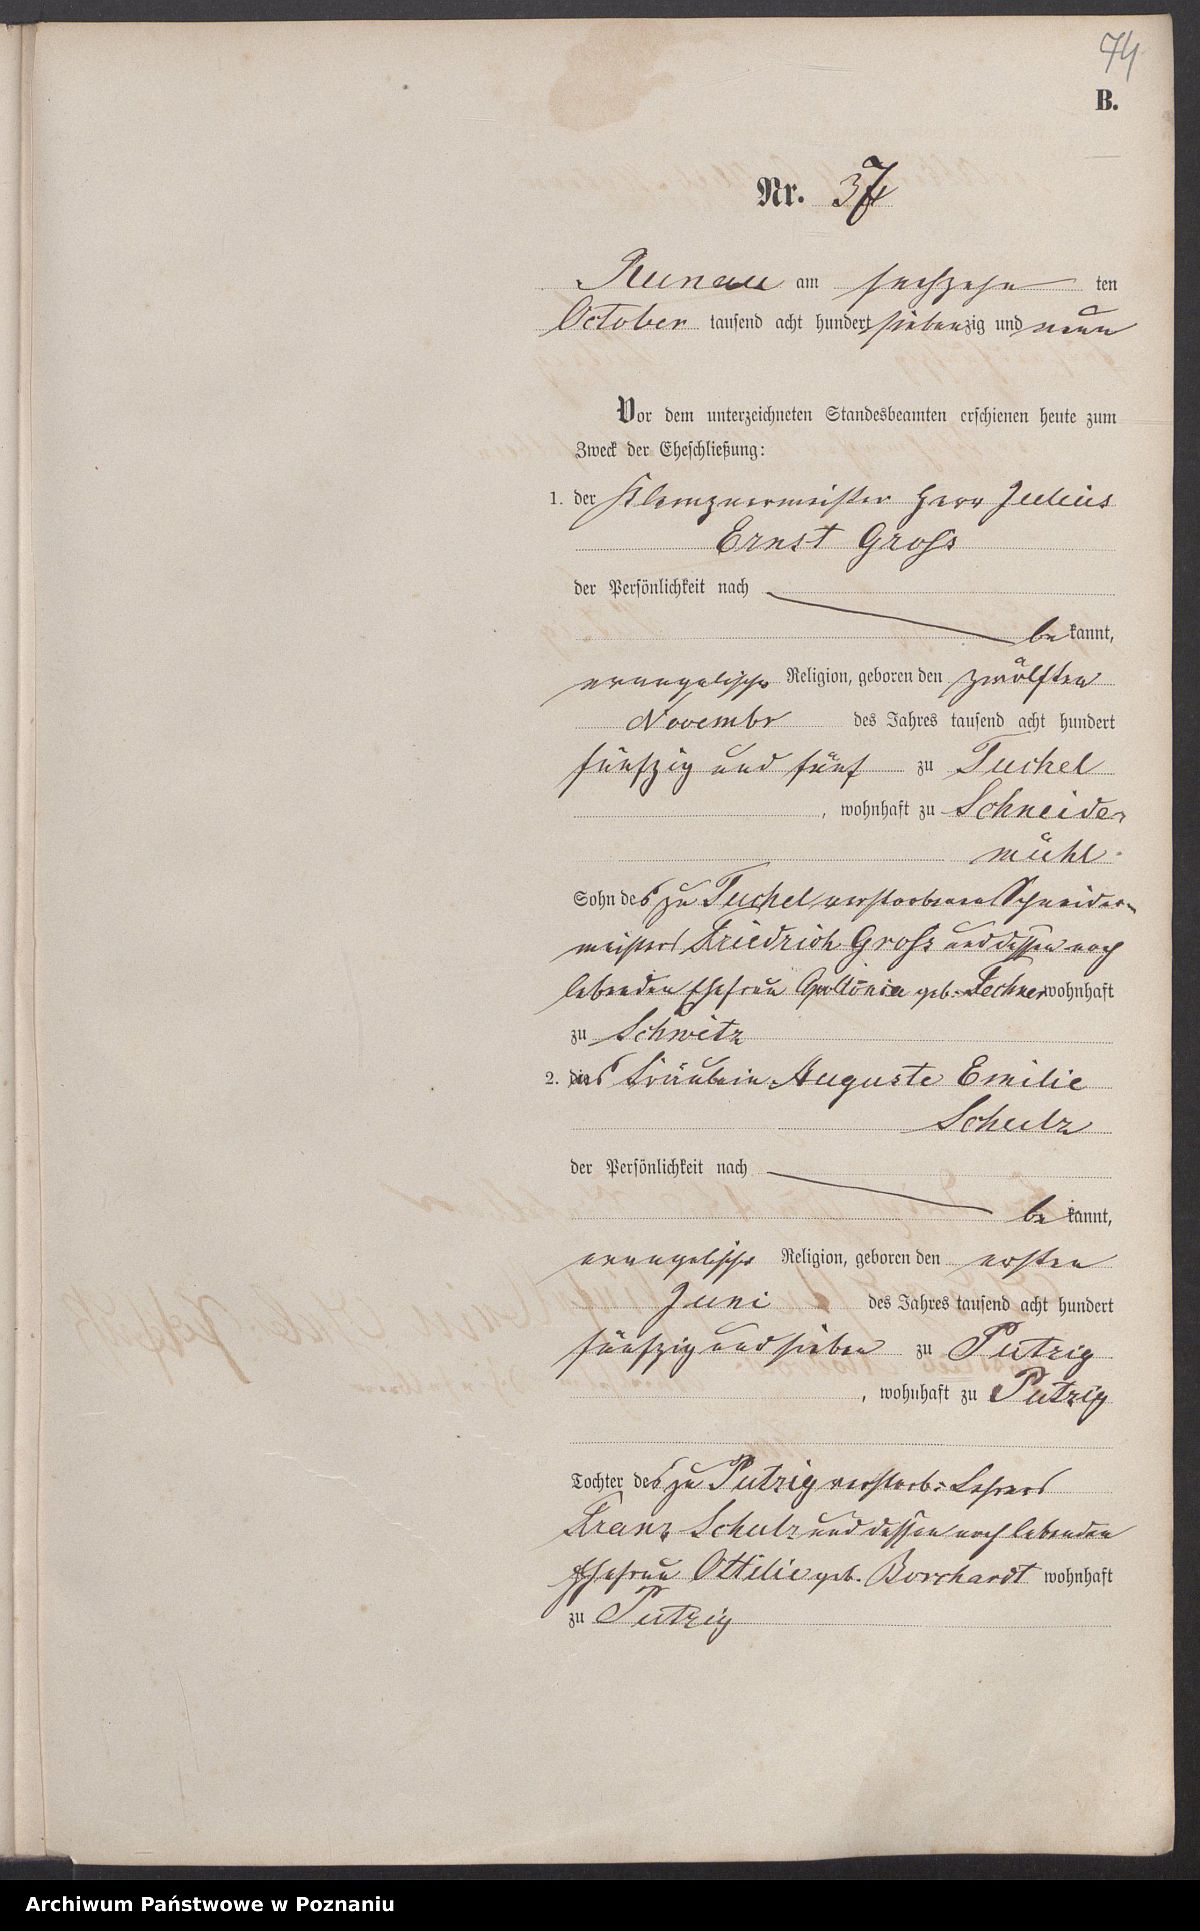 74
B.
Nr. 37
Runau am sechszehn ten
October tausend acht hundert siebenzig und neun
Vor dem unterzeichneten Standesbeamten erschienen heute zum
Zweck der Eheschließung:
1. der Klempnermeister Herr Julius
Ernst Gross
der Persönlichkeit nach
be kannt,
evangelischer Religion, geboren den zwölften
Novembr des Jahres tausend acht hundert
fünfzig und fünf zu Tuchel
, wohnhaft zu Schneide
mühl
Sohn des zu Tuchel verstorbenen Schneider-
meisters Friedrich Gross und dessen noch
lebenden Ehefrau geb. Lechner wohnhaft
zu Schwitz
2. das Fräulein Auguste Emilie
Schulz
der Persönlichkeit nach
be kannt,
evangelischer Religion, geboren den ersten
Juni des Jahres tausend acht hundert
fünfzig und sieben zu Putzig
, wohnhaft zu Putzig
Tochter des zu Putzig verstorb. Lehrers
Franz Schulz und dessen noch lebenden
Ehefrau Ottilie geb. Borchardt wohnhaft
zu Putzig
Archiwum Państwowe w Poznaniu